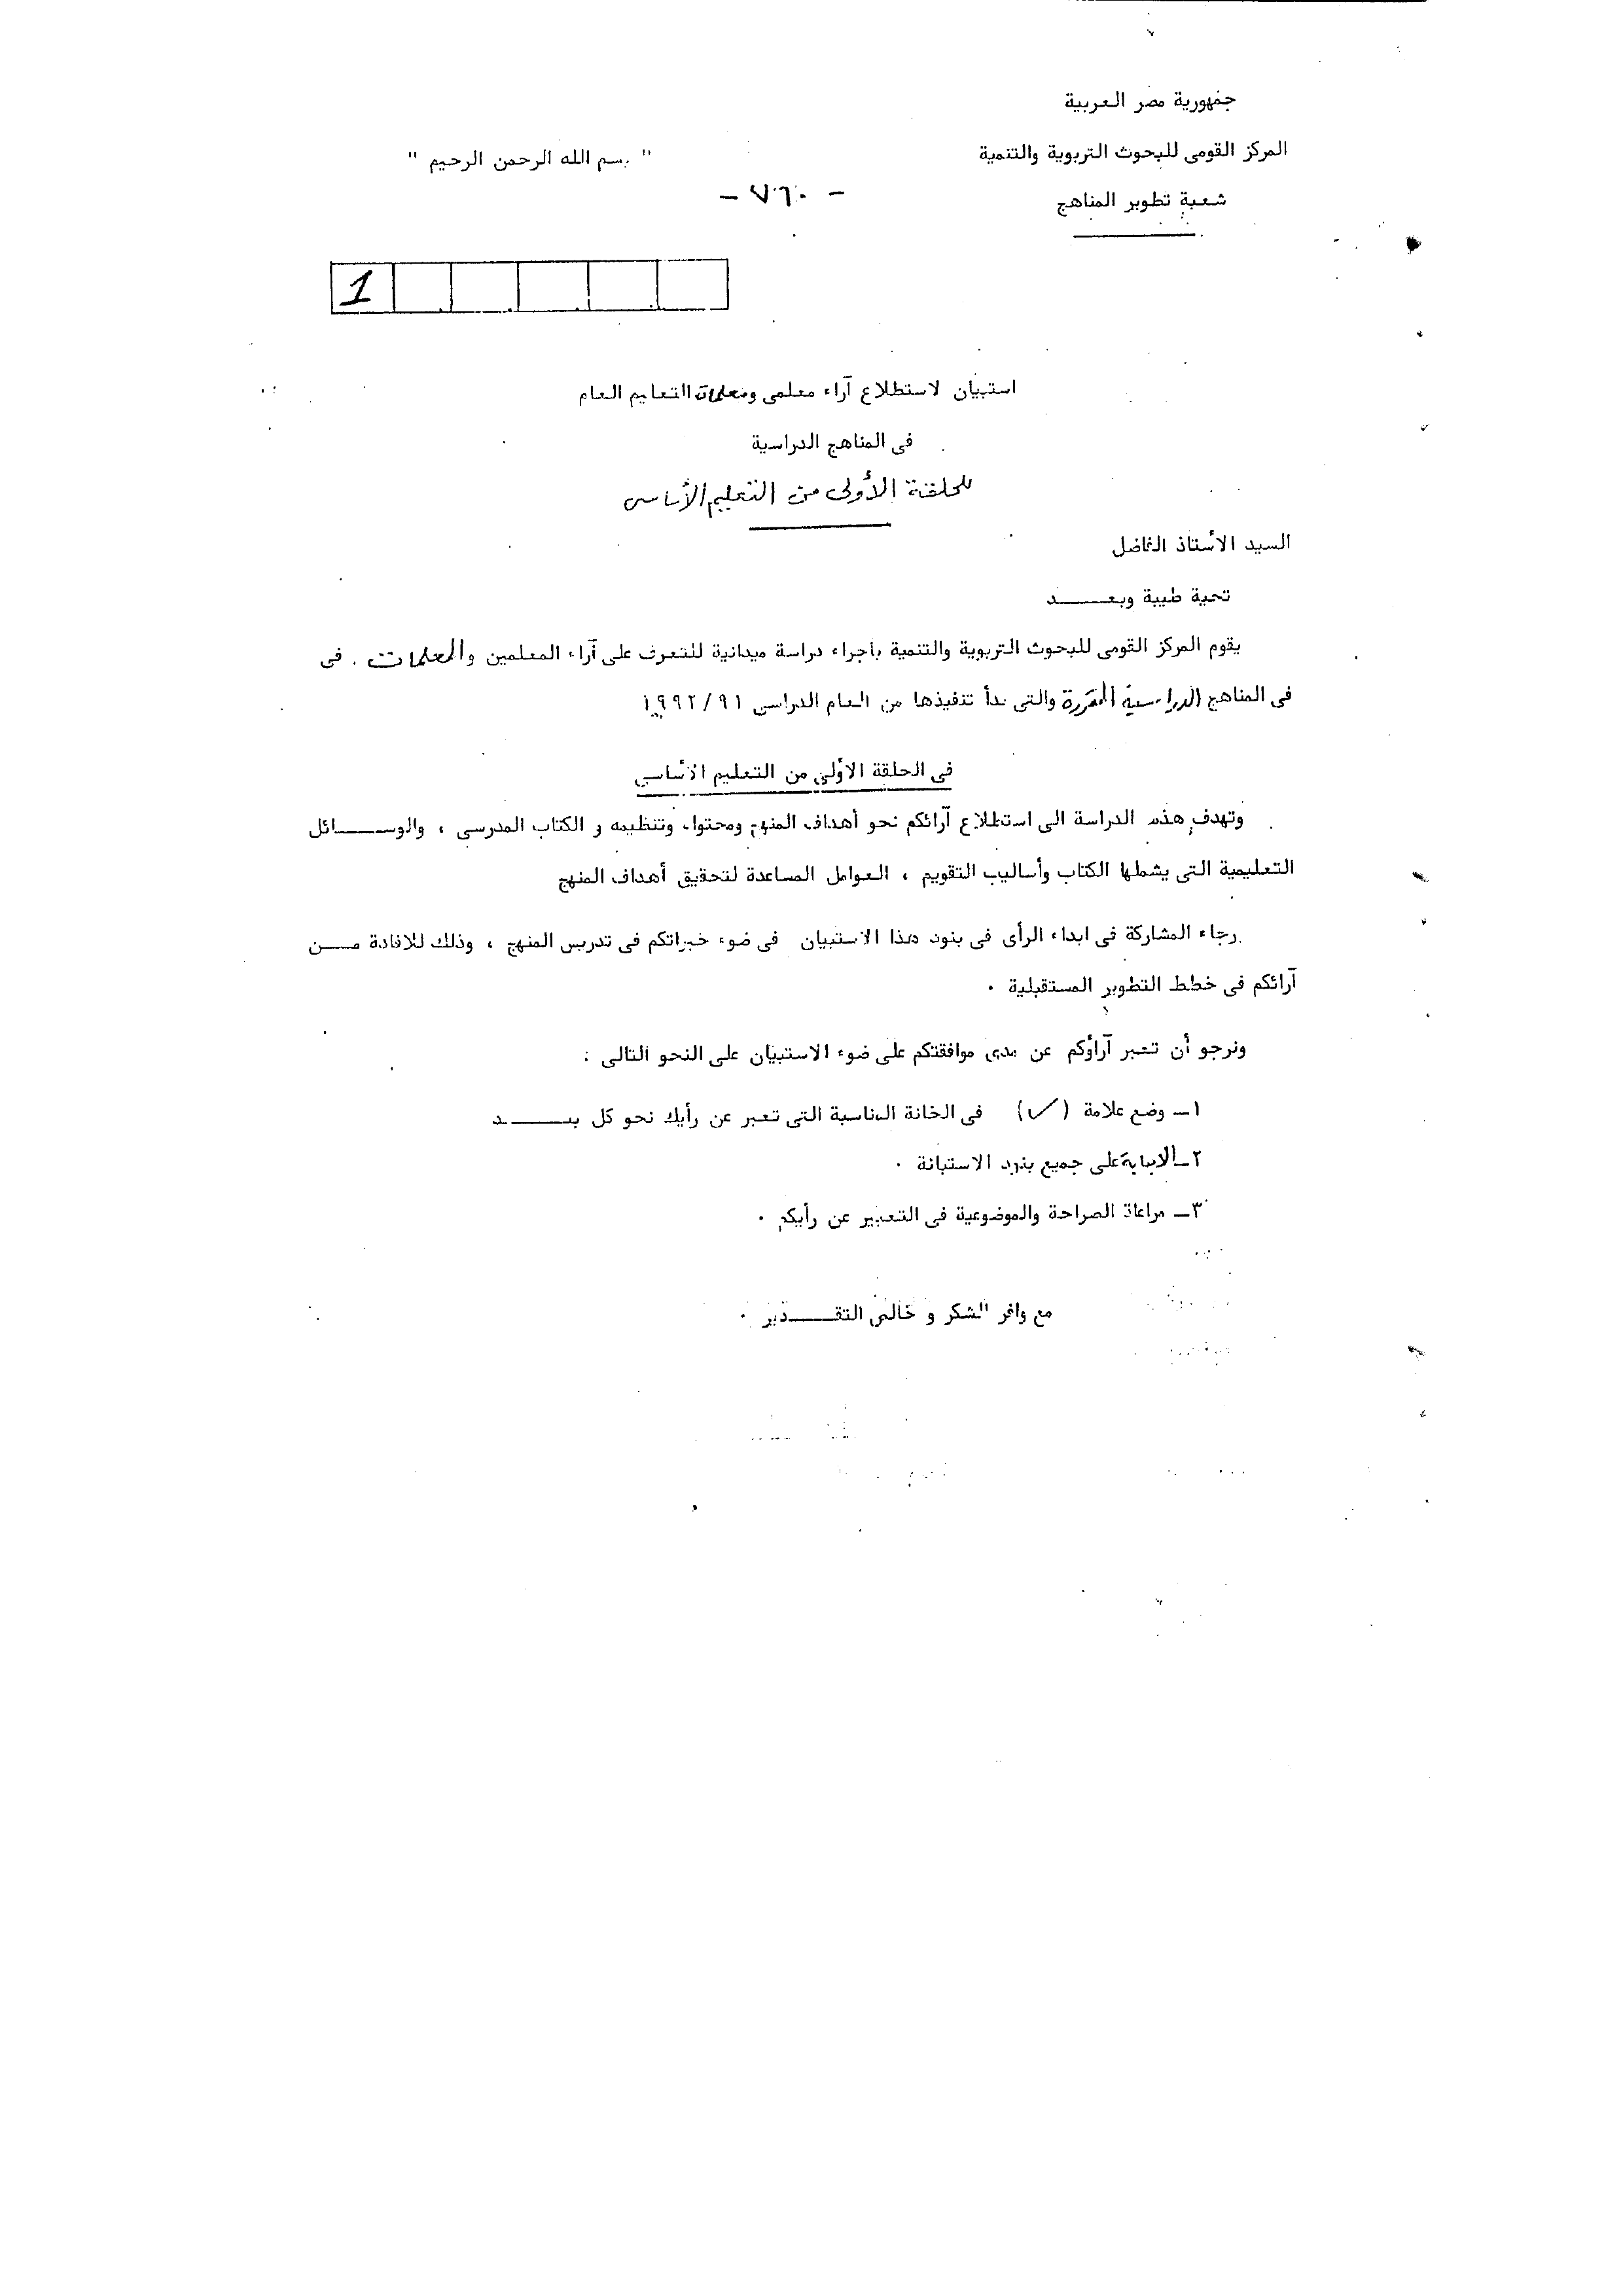 جمهورية مصر العربية
المركز القومى للبحوث التربوية والتنمية
" بسم الله الرحمن الرحيم "
شعبة تطوير المناهج
- ٧٦٠ -
1
استبيان لاستطلاع آراء معلمى ومعلمات التعليم العام
فى المناهج الدراسية
للحلقة الأولى من التعليم الأساسى
السيد الأستاذ الفاضل
تحية طيبة وبعـــــد
يقوم المركز القومى للبحوث التربوية والتنمية باجراء دراسة ميدانية للتعرف على آراء المعلمين والمعلمات . فى
فى المناهج الدراسية المقررة والتى بدأ تنفيذها من العام الدراسى ١٩٩٢/٩١
فى الحلقة الأولى من التعليم الأساسى
وتهدف هذه الدراسة الى استطلاع آرائكم نحو أهداف المنهج ومحتواه وتنظيمه و الكتاب المدرسى ، والوســـــائل
التعليمية التى يشملها الكتاب وأساليب التقويم ، العوامل المساعدة لتحقيق أهداف المنهج
رجاء المشاركة فى ابداء الرأى فى بنود هذا الاستبيان فى ضوء خبراتكم فى تدريس المنهج ، وذلك للافادة مـــن
آرائكم فى خطط التطوير المستقبلية .
ونرجو أن تعبر آراؤكم عن مدى موافقتكم على ضوء الاستبيان على النحو التالى :
١ـ وضع علامة (✓) فى الخانة المناسبة التى تعبر عن رأيك نحو كل بنـــــد
٢ـ الاجابة على جميع بنود الاستبانة .
٣ـ مراعاة الصراحة والموضوعية فى التعبير عن رأيكم .
مع وافر الشكر و خالص التقـــــدير .